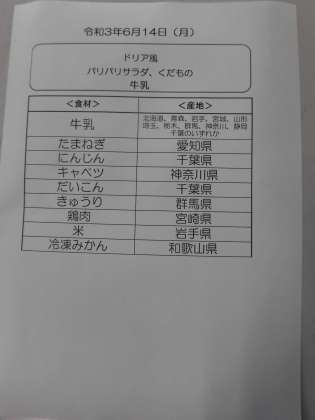 令和3年6月14日（月）
ドリア風
パリパリサラダ、くだもの
牛乳
＜食材＞ ＜産地＞
牛乳 北海道、青森、岩手、宮城、山形
埼玉、栃木、群馬、神奈川、静岡
千葉のいずれか
たまねぎ 愛知県
にんじん 千葉県
キャベツ 神奈川県
だいこん 千葉県
きゅうり 群馬県
鶏肉 宮崎県
米 岩手県
冷凍みかん 和歌山県